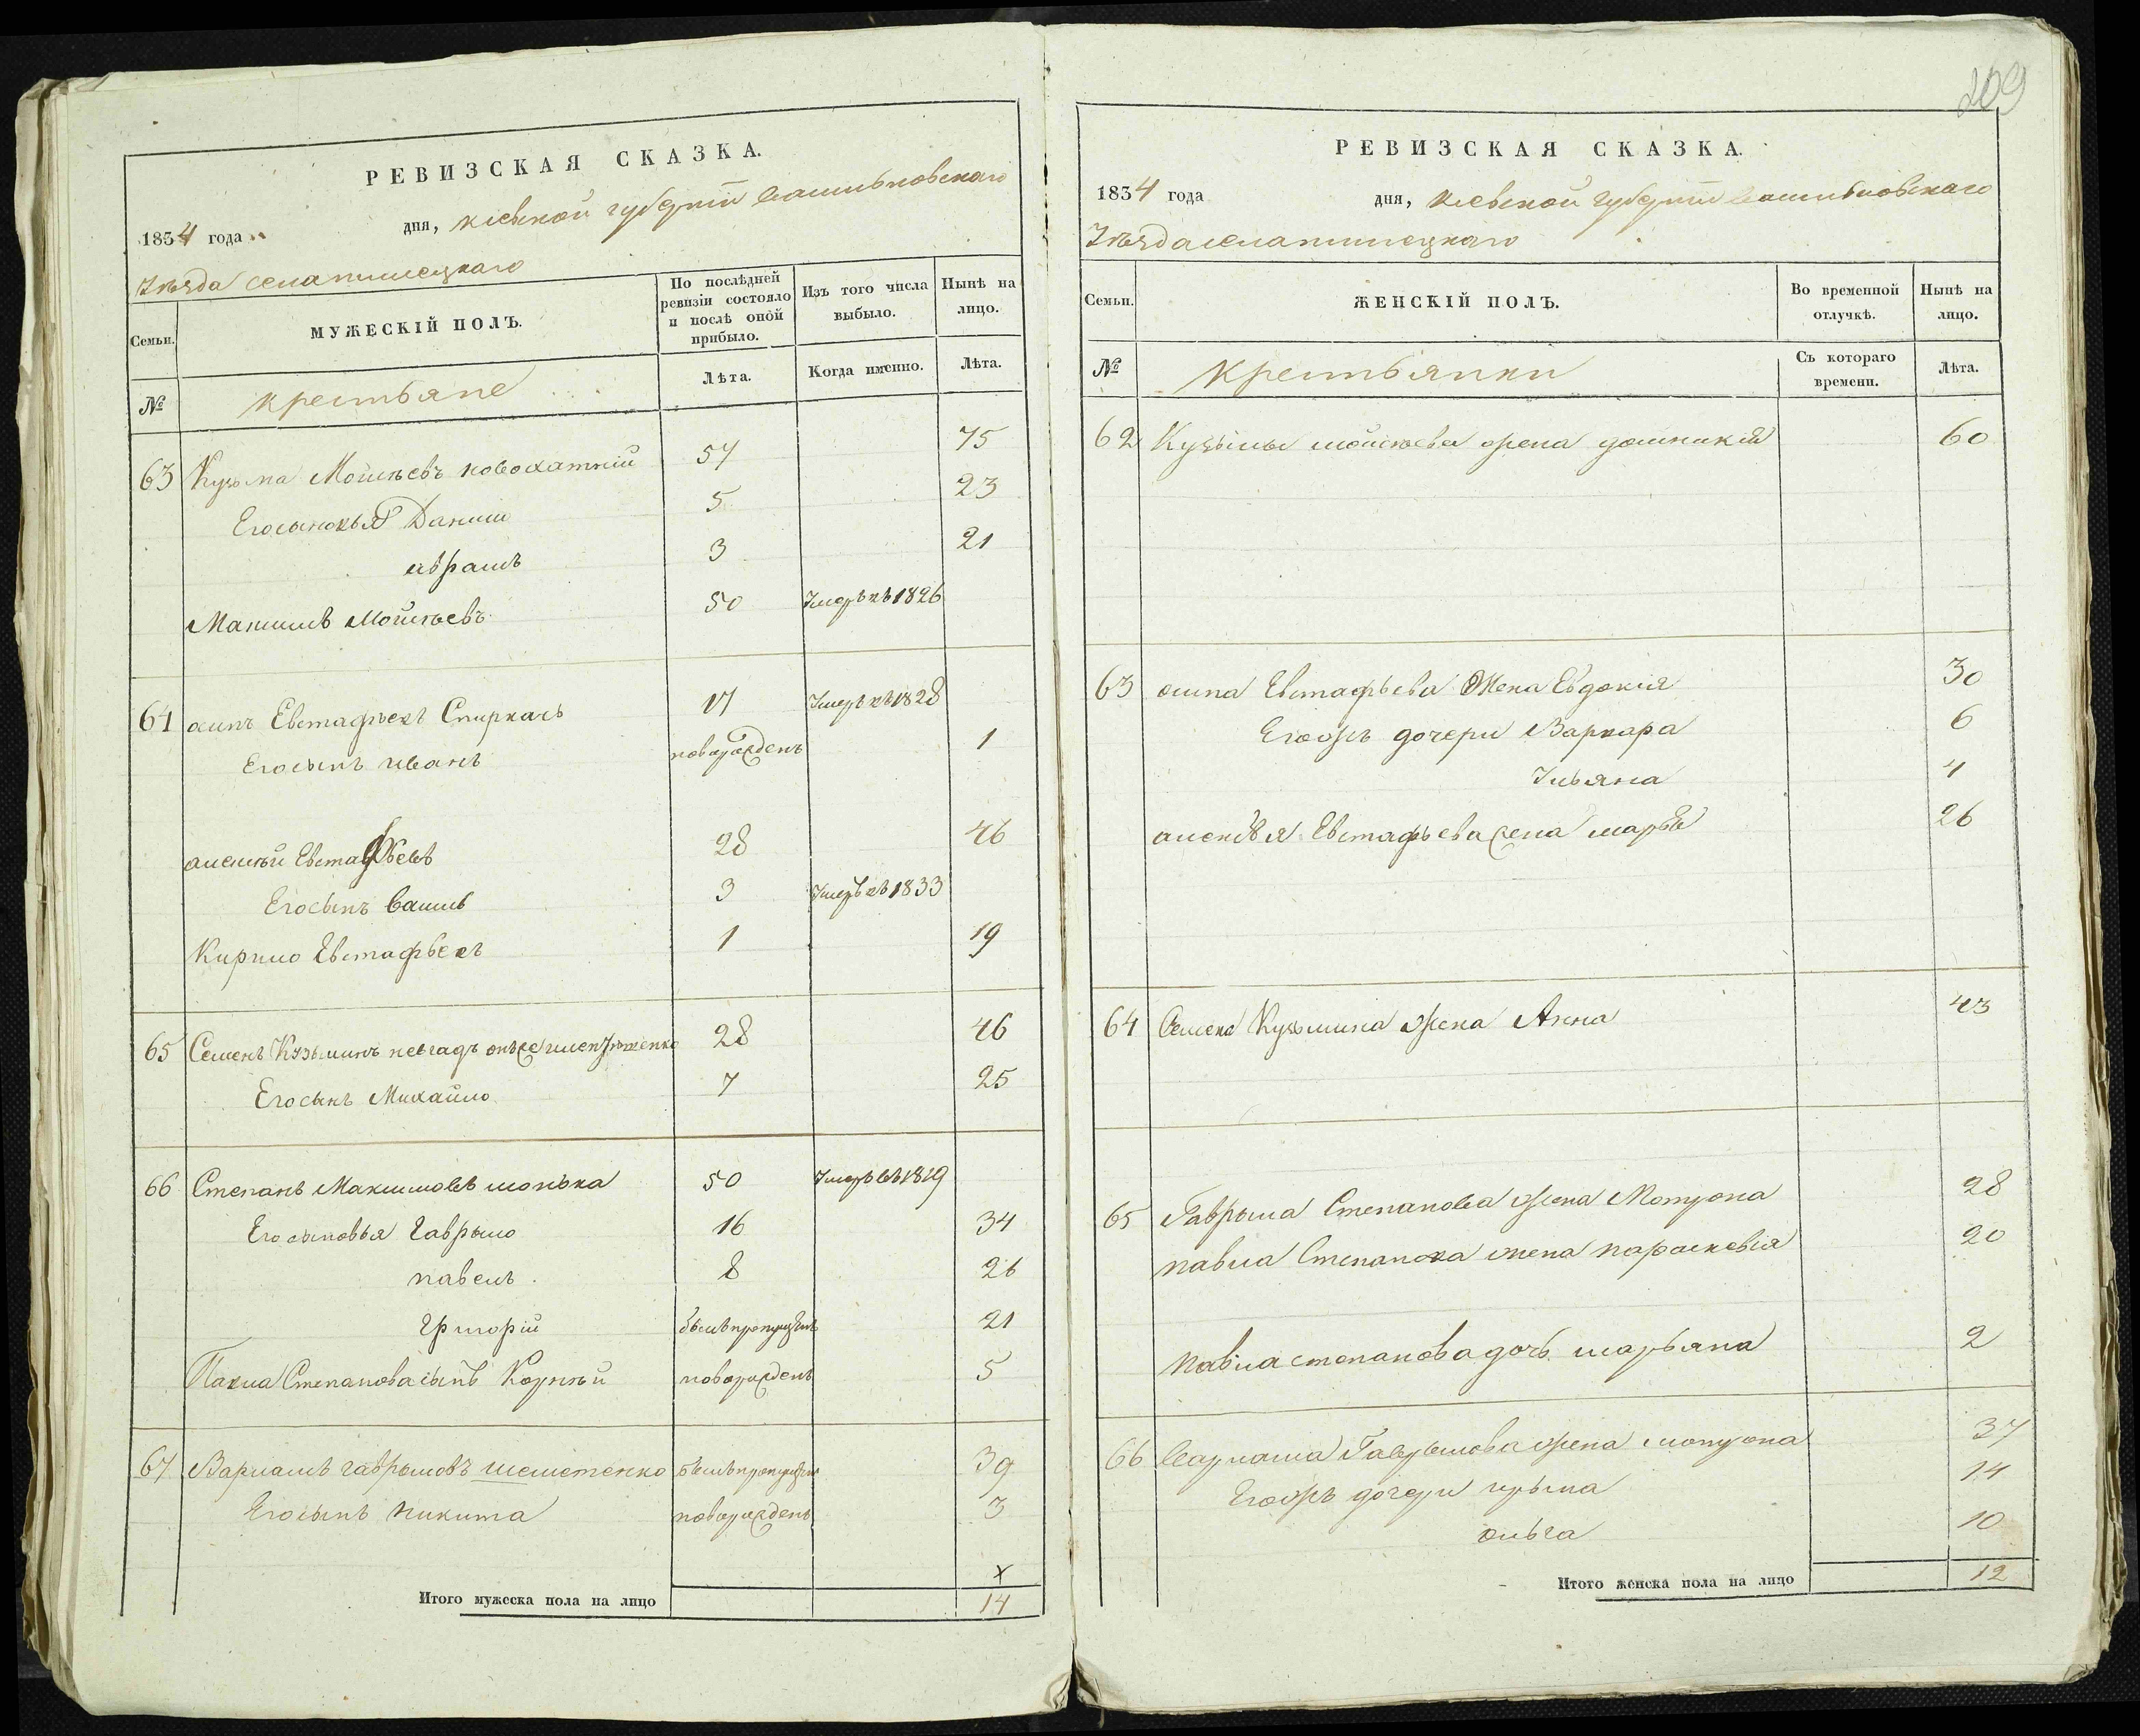 РЕВИЗСКАЯ СКАЗКА.
1834 года дня, киевской губернии васильковскаго
уезда села
Семьи. МУЖЕСКІЙ ПОЛЪ. По послѣдней ревизіи состояло и послѣ оной прибыло. Изъ того числа выбыло. Нынѣ на лицо.
№ крестьяне Лѣта. Когда именно. Лѣта.
63 Кузьма Мойсѣевъ новохатній 57 75
Его сыновья Данило 5 23
аврамъ 3 21
Максимъ Мойсѣевъ 50 Умеръ въ 1826
64 осипъ Евстафьевъ Спиркачь 17 Умеръ въ 1828
Его сынъ иванъ новорожденъ 1
алексѣй Евстафьевъ 28 46
Его сынъ василь 3 Умеръ въ 1833
Кирило Евстафьевъ 1 19
65 Семенъ Кузьминъ 28 46
Его сынъ Михайло 7 25
66 Степанъ Максимовъ шонька 50 Умеръ въ 1819
Его сыновья Гаврыло 16 34
павелъ 8 26
Григорій былъ пропущенъ 21
Павла Степанова сынъ Корнѣй новорожденъ 5
67 Варламъ гаврыловъ шелестенко былъ пропущенъ 39
Его сынъ никита новорожденъ 3
х
Итого мужеска пола на лицо 14
209
РЕВИЗСКАЯ СКАЗКА.
1834 года дня, киевской губерніи васильковскаго
Уезда села
Семьи. ЖЕНСКІЙ ПОЛЪ. Во временной отлучкѣ. Нынѣ на лицо.
№ крестьянки Съ котораго времени. Лѣта.
62 Кузьмы мойсѣева жена домникія 60
63 осипа Евстафьева Жена Евдокія 30
Его ожъ дочери Варвара 6
Ульяна 4
алексѣя Евстафьева жена марья 26
64 Семена Кузьмина жена Анна 43
65 Гаврыла Степанова жена Мотрона 28
павла Степанова жена параскевія 20
павла степанова дочь марьяна 2
66 варлама Гаврылова жена мотрона 37
Его ожъ дочери ирына 14
ольга 10
Итого женска пола на лицо 12